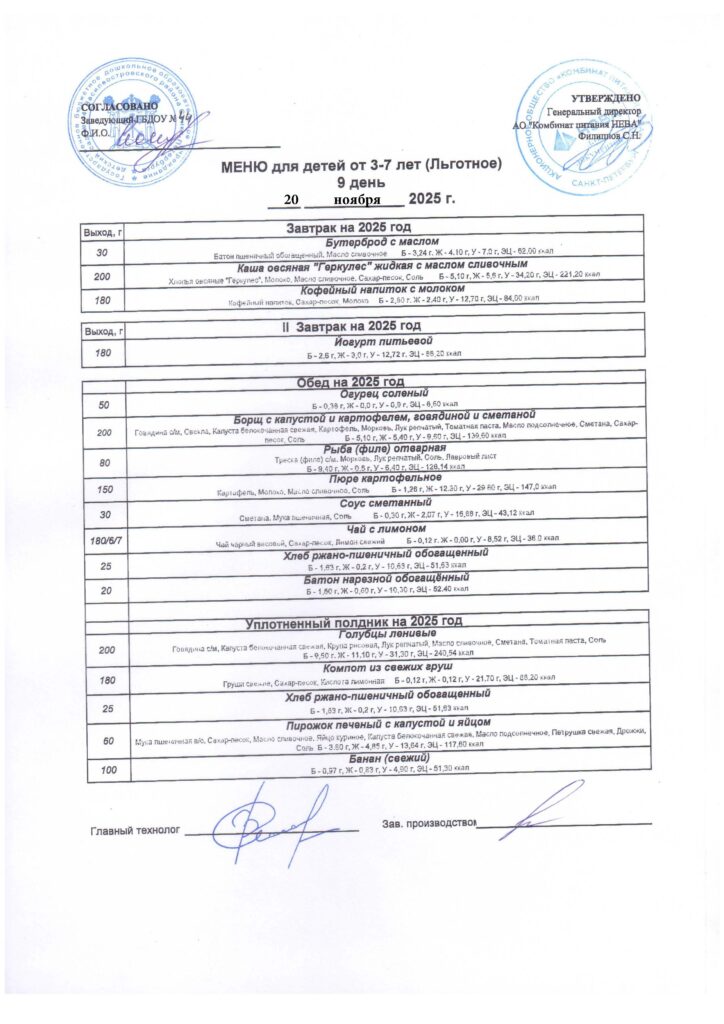 СОГЛАСОВАНО
Заведующий ГБДОУ № 44
Ф.И.О.
УТВЕРЖДЕНО
Генеральный директор
АО "Комбинат питания НЕВА"
Филиппов С.Н.
МЕНЮ для детей от 3-7 лет (Льготное)
9 день
20 ноября 2025 г.
Выход, г Завтрак на 2025 год
Бутерброд с маслом
30 Батон пшеничный обогащенный, Масло сливочное Б - 3,24 г, Ж - 4,10 г, У - 7,0 г, ЭЦ - 62,00 ккал
Каша овсяная "Геркулес" жидкая с маслом сливочным
200 Хлопья овсяные "Геркулес", Молоко, Масло сливочное, Сахар-песок, Соль Б - 5,10 г, Ж - 5,6 г, У - 34,20 г, ЭЦ - 221,20 ккал
Кофейный напиток с молоком
180 Кофейный напиток, Сахар-песок, Молоко Б - 2,60 г, Ж - 2,40 г, У - 12,70 г, ЭЦ - 84,00 ккал
Выход, г II Завтрак на 2025 год
Йогурт питьевой
180 Б - 2,6 г, Ж - 3,0 г, У - 12,72 г, ЭЦ - 88,20 ккал
Обед на 2025 год
Огурец соленый
50 Б - 0,38 г, Ж - 0,0 г, У - 0,9 г, ЭЦ - 6,60 ккал
Борщ с капустой и картофелем, говядиной и сметаной
200 Говядина с/м, Свекла, Капуста белокочанная свежая, Картофель, Морковь, Лук репчатый, Томатная паста, Масло подсолнечное, Сметана, Сахар-
песок, Соль Б - 5,10 г, Ж - 5,40 г, У - 9,60 г, ЭЦ - 139,60 ккал
Рыба (филе) отварная
80 Треска (филе) с/м, Морковь, Лук репчатый, Соль, Лавровый лист
Б - 9,40 г, Ж - 0,5 г, У - 6,40 г, ЭЦ - 126,14 ккал
Пюре картофельное
150 Картофель, Молоко, Масло сливочное, Соль Б - 1,26 г, Ж - 12,30 г, У - 29,60 г, ЭЦ - 147,0 ккал
Соус сметанный
30 Сметана, Мука пшеничная, Соль Б - 0,30 г, Ж - 2,07 г, У - 16,68 г, ЭЦ - 43,12 ккал
Чай с лимоном
180/6/7 Чай черный весовой, Сахар-песок, Лимон свежий Б - 0,12 г, Ж - 0,00 г, У - 8,52 г, ЭЦ - 36,0 ккал
Хлеб ржано-пшеничный обогащенный
25 Б - 1,63 г, Ж - 0,2 г, У - 10,63 г, ЭЦ - 51,63 ккал
Батон нарезной обогащённый
20 Б - 1,60 г, Ж - 0,60 г, У - 10,30 г, ЭЦ - 52,40 ккал
Уплотненный полдник на 2025 год
Голубцы ленивые
200 Говядина с/м, Капуста белокочанная свежая, Крупа рисовая, Лук репчатый, Масло сливочное, Сметана, Томатная паста, Соль
Б - 9,60 г, Ж - 11,10 г, У - 31,30 г, ЭЦ - 240,54 ккал
Компот из свежих груш
180 Груши свежие, Сахар-песок, Кислота лимонная Б - 0,12 г, Ж - 0,12 г, У - 21,70 г, ЭЦ - 88,20 ккал
Хлеб ржано-пшеничный обогащенный
25 Б - 1,63 г, Ж - 0,2 г, У - 10,63 г, ЭЦ - 51,63 ккал
Пирожок печеный с капустой и яйцом
60 Мука пшеничная в/с, Сахар-песок, Масло сливочное, Яйцо куриное, Капуста белокочанная свежая, Масло подсолнечное, Петрушка свежая, Дрожжи,
Соль Б - 3,60 г, Ж - 4,85 г, У - 13,64 г, ЭЦ - 117,60 ккал
Банан (свежий)
100 Б - 0,97 г, Ж - 0,83 г, У - 4,90 г, ЭЦ - 51,30 ккал
Главный технолог
Зав. производством